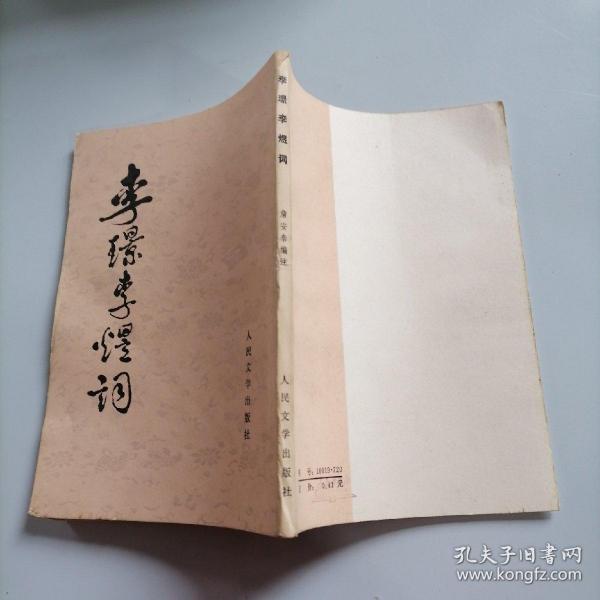 李璟李煜词
人民文学出版社
李璟李煜词
詹安泰编注
人民文学出版社
号:10019·720
0.41元
孔夫子旧书网
www.kongfz.com